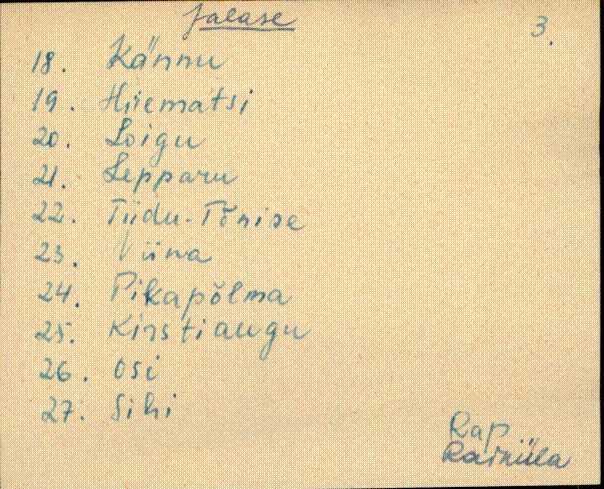 Jalase
3.
18. Kännu
19. Hiiematsi
20. Loigu
21. Lepparu
22. Tiidu-Tõnise
23. Viina
24. Pikapõlma
25. Kirstiaugu
26. Osi
27. Sihi
Rap